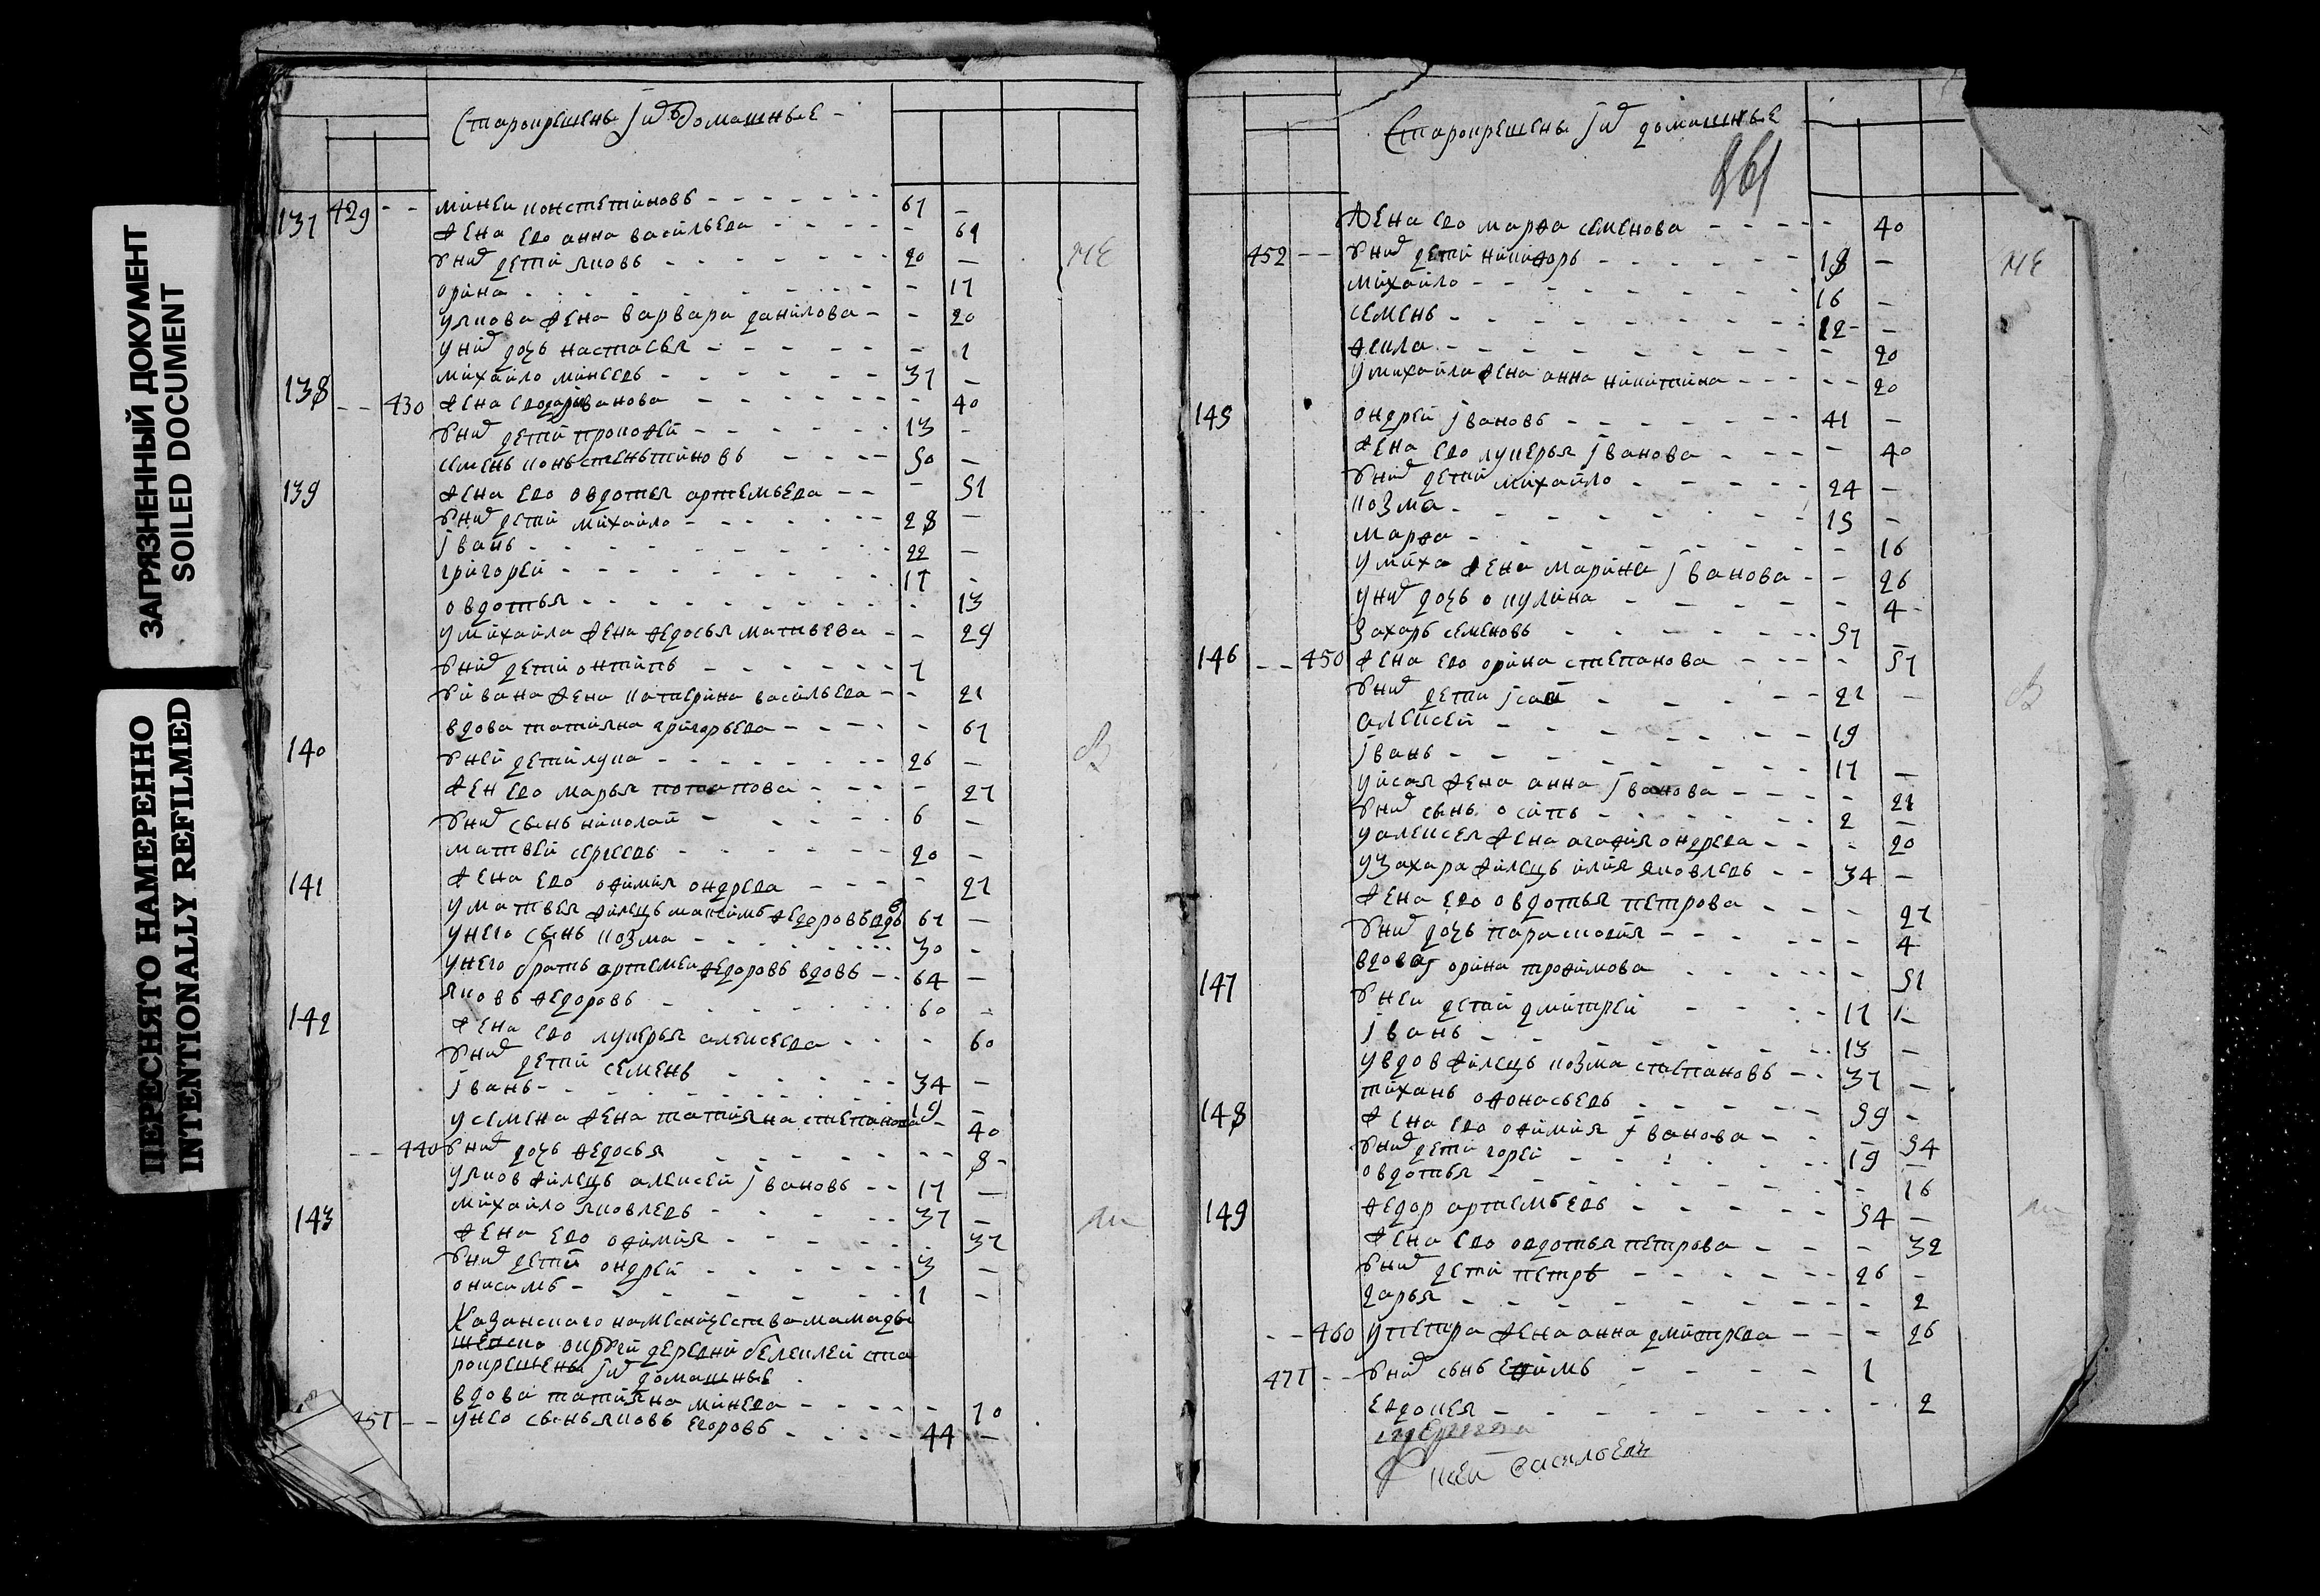 ЗАГРЯЗНЕННЫЙ ДОКУМЕНТ
SOILED DOCUMENT
ПЕРЕСНЯТО НАМЕРЕННО
INTENTIONALLY REFILMED
Старокрешены и домашные
137 429 - - минеи констетиновъ - - - 61 -
жена ево анна васильева - - - - 61
у них дети яковъ - - - 20 -
орина - - - - 17
у якова жена варвара данилова - - 20
у них дочь настасья - - - - 1
138 михайло минеевъ - - - 37 -
- - 430 жена ево ивановa - - - - 40
у них дети прокофей - - - 13 -
семенъ коньстеньтиновъ - - - 50 -
139 жена ево овдотья артемьева - - - 51
у них дети михайло - - - 28 -
iванъ - - - 22 -
григорей - - - 17 -
овдотья - - - - 13
у михайла жена федосья матвева - - 29
у них дети онтипъ - - - 1
у ивана жена катерина васильева - - 21
вдова татияна григорьева - - - - 61
140 у ней дети лука - - - 26 -
жен ево марья потапова - - - - 21
у них сынъ николай - - - 6 -
матвей сергеевъ - - - 20 -
141 жена ево офимия ондрева - - - - 21
у матвея жилецъ максимъ федоровъ вдовъ 61 -
у него сынъ козма - - - 30 -
у него братъ артемеи федоровъ вдовъ - - 64 -
яковъ федоровъ - - - 60 -
142 жена ево лукерья алексеева - - - - 60
у них дети семенъ - - - 34 -
iванъ - - - 19 -
у семена жена татияна степанова - 40
- - 440 у них дочь федосья - - - - 8 -
у яков жилецъ алексей iвановъ - - 17 -
143 михайло яковлевъ - - - 37 -
жена ево офимия - - - - 31
у них дети ондрей - - - 3 -
онисимъ - - - 1 -
Казанского наместничества мамады
округи деревни ста
рокрешены и домашные
вдова татияна минева - - - - 70
451 - - у нео сынъ яковъ егоровъ - - - 44 -
Старокрешены и домашные
161
жена ево марфа семенова - - - - 40
452 - - у них дети никифоръ - - - 18 -
михайло - - - 16 -
семенъ - - - 12 -
фекла - - - - 20
у михайла жена анна никитина - - - - 20
145 ондрей iвановъ - - - 41 -
жена ево лукерья iванова - - - - 40
у них дети михайло - - - 24 -
козма - - - 15 -
марфа - - - - 16
у миха жена марина iванова - - 26
у них дочь окулина - - - - 4 -
захаръ семеновъ - - - 51 -
146 - - 450 жена ево орина степанова - - - - 51
у них дети iсаи - - - 21 -
алексей - - - 19
iванъ - - - 17 -
у исая жена анна iванова - - - - 21
у них сынъ осипъ - - - 2 -
у алексея жена агафия ондрева - - - 20
у захара жилецъ илия яковлевъ - - 34 -
жена ево овдотья петрова - - - - 21
у них дочь парасковия - - - - 4
147 вдова орина трофимова - - - - 51
у неи дети дмитрей - - - 17 -
iванъ - - - 13 -
у вдов жилецъ козма степановъ - - 37 -
148 тиханъ офонасьевъ - - - 59 -
жена ево офимия iванова - - - 54
у них дети горей - - - 19 -
овдотья - - - - 16
149 федор артемьевъ - - - 54 -
жена ево овдотья петрова - - - - 32
у них дети петръ - - - 26 -
дарья - - - - 2
- - 460 у петра жена анна дмитрева - - - 26
471 - - у них сынъ ефимъ - - - 1
евдокея - - - - 2
васильевъ